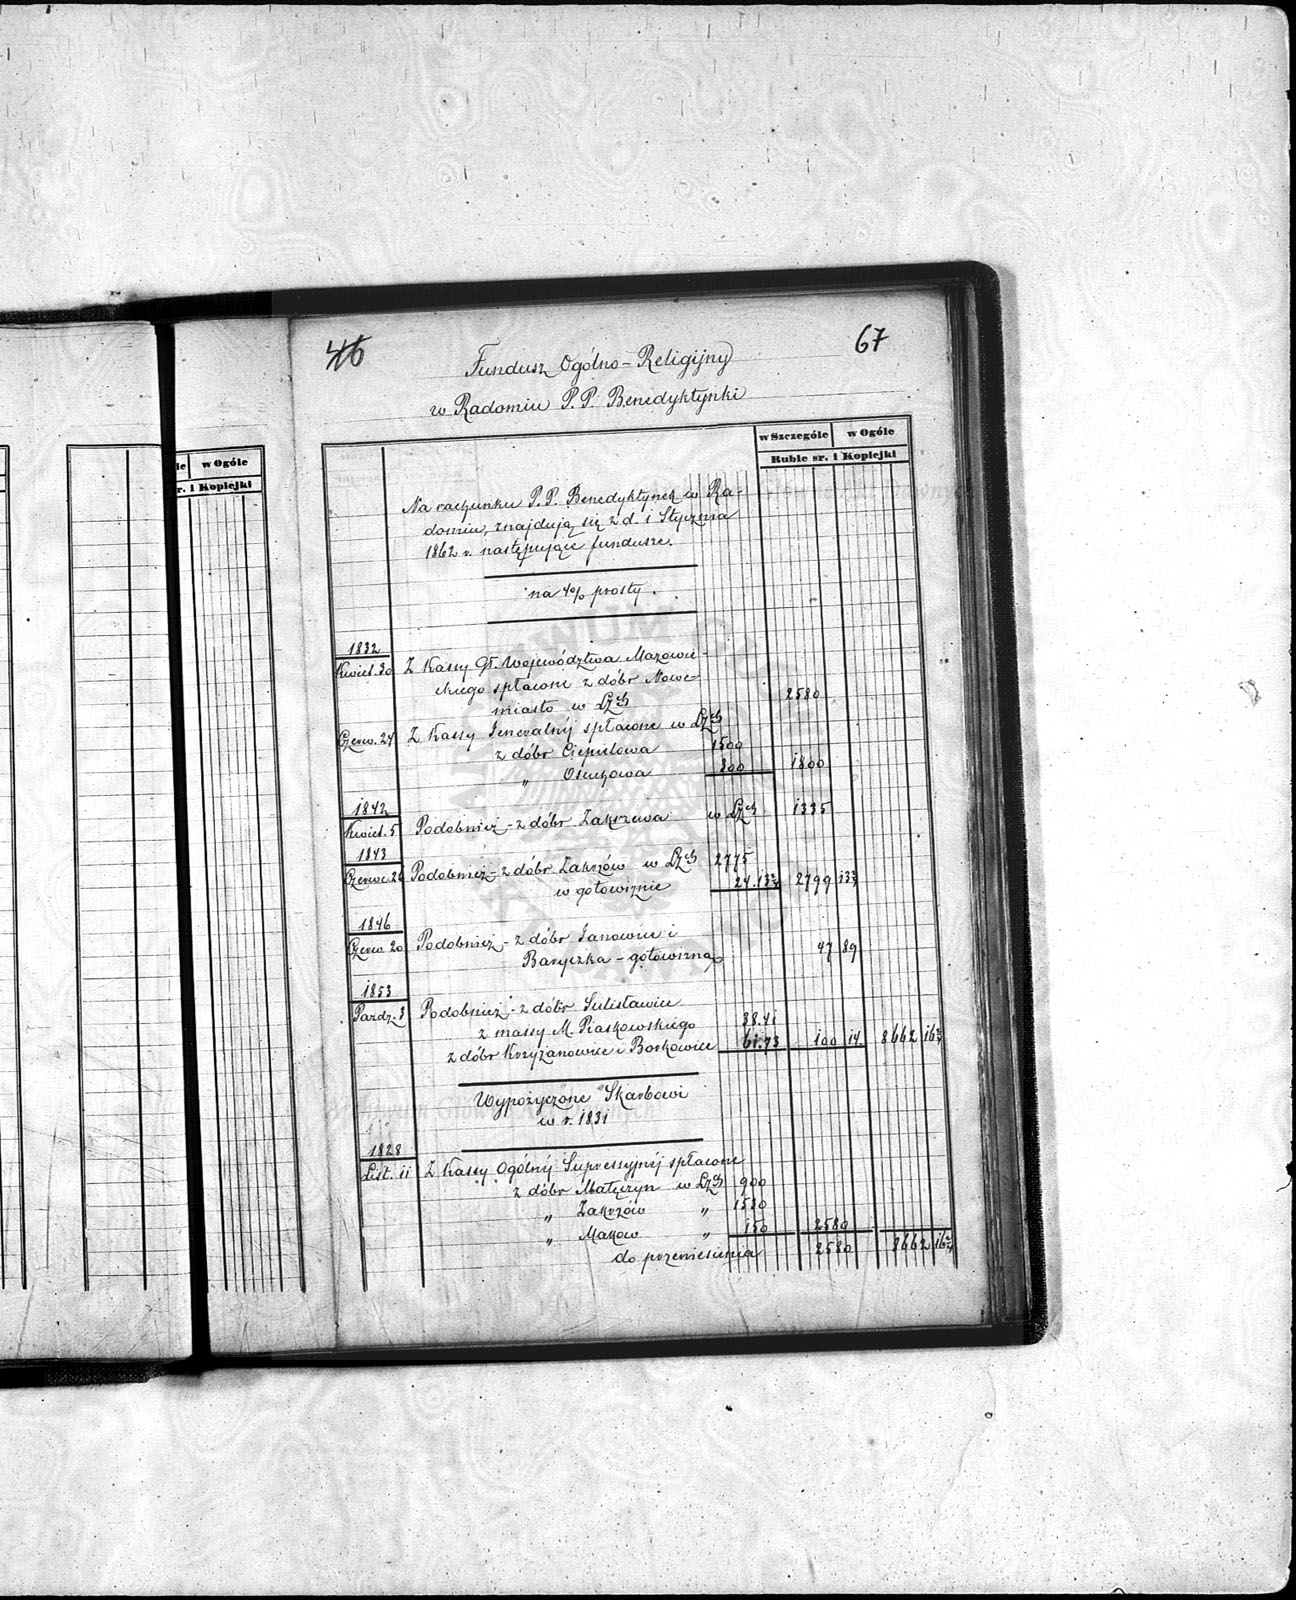 46
67
Fundusz Ogólno-Religijny
w Radomiu P.P. Benedyktynki
w Szczególe w Ogóle
Ruble sr. i Kopiejki
le w Ogóle
r. i Kopiejki
Na rachunku P.P. Benedyktynek w Ra-
domiu, znajdują się z d. 1 Stycznia
1862 r. następujące fundusze.
na 4% prosty.
1832
Kwiet. 30 Z Kassy Gł. Województwa Mazowie-
ckiego spłacone z dóbr Nowe-
miasto w Lzch 2580
Czerw. 24 Z Kassy Jeneralnéj spłacone w Lzch
z dóbr Ciepielowa 1500
" Osuchowa 300 1800
1842
Kwiet. 5 Podobnież - z dóbr Zakrzewa w Lzch 1335
1843
Czerwc. 26 Podobnież - z dóbr Zakrzów w Lzch 2775
w gotowiznie 24.13 2799 13
1846
Czerw. 20 Podobnież - z dóbr Janowice i
Baryczka - gotowizną 47 89
1853
Pazdz. 3 Podobnież - z dóbr Sulisławice
z massy M. Piaskowskiego 38.41
z dóbr Krzyżanowice i Boskowice 61.73 100 14. 8662 16
Wypożyczone Skarbowi
w r. 1831
1828
List. 11 Z Kassy Ogólnéj Supressyjnéj spłacone
z dóbr Matyczyn w Lzch 900
" Zakrzów " 1530
" Maków " 150 2580
do przeniesienia 2580 8662 16